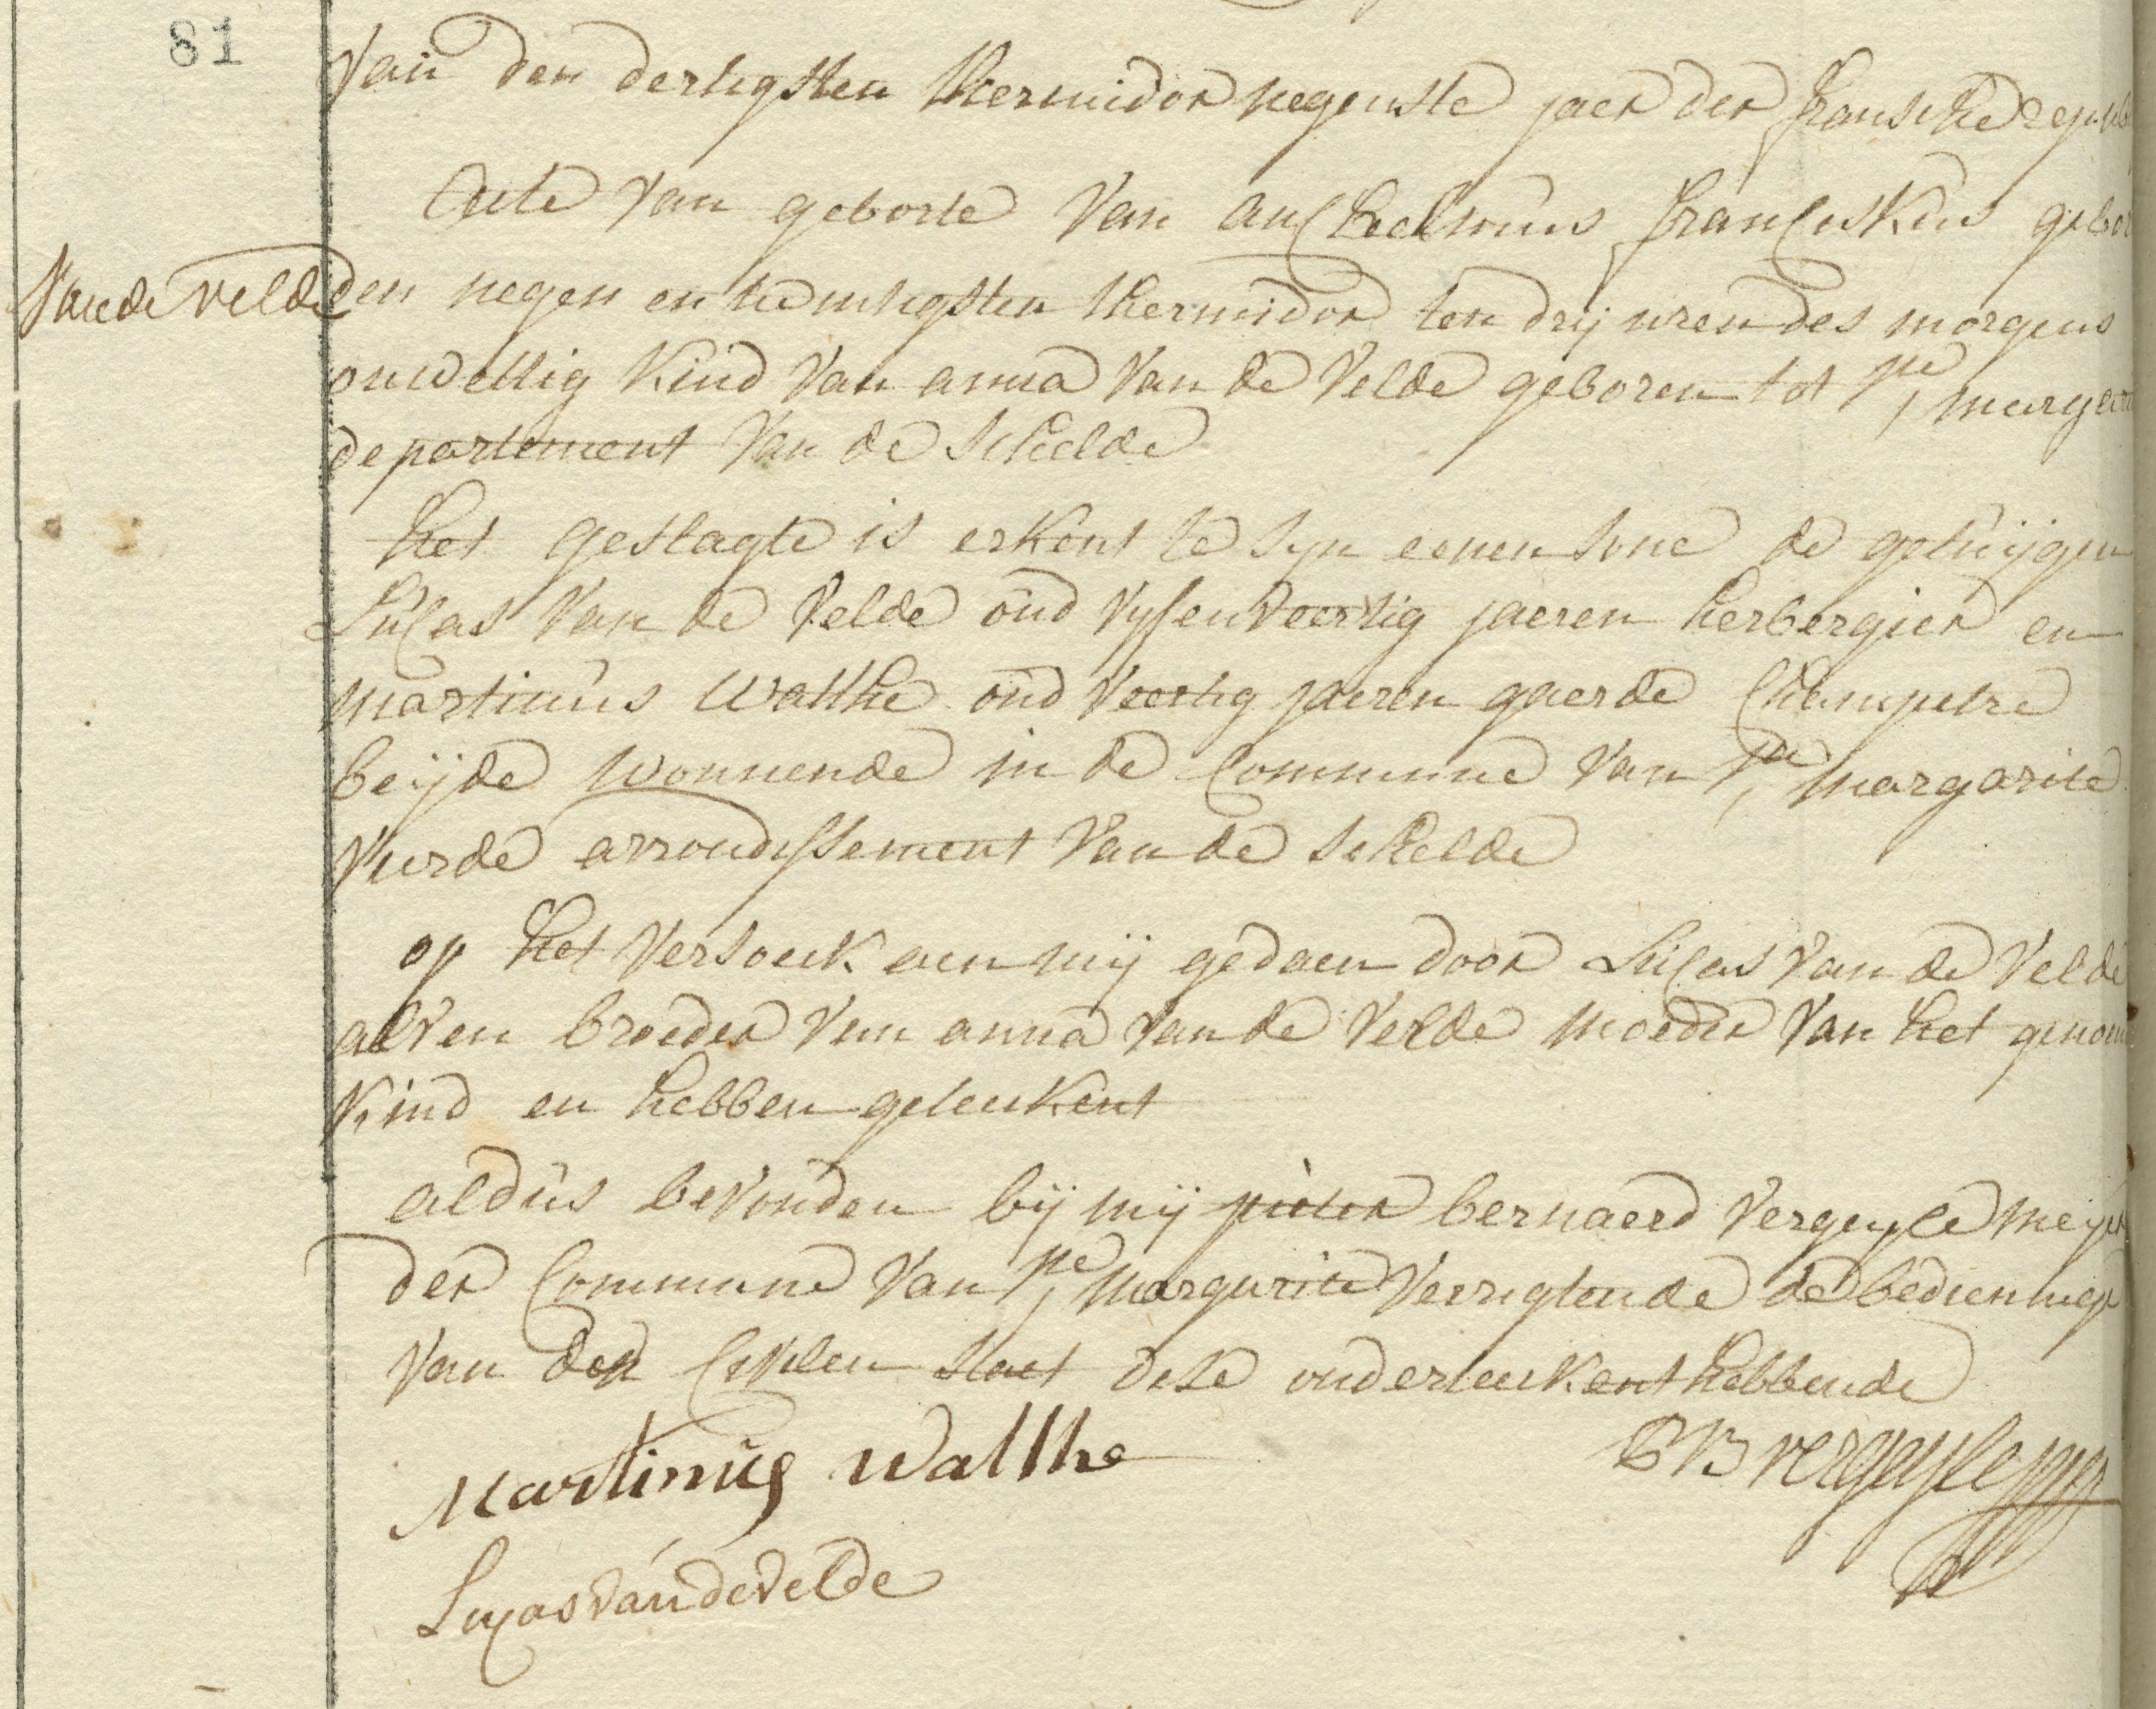 81
Van den dertigsten thermidor negenste jaer der fransche repub
Acte van geborte van anschelmus franciskus gebor
Van de velde
den negen en twintigsten thermidor ten drij uren des morgens
onwettig kind van anna van de velde geboren tot Ste margari
departement van de schelde
het geslagte is erkent te syn eenen sone de getuijgen
Lucas van de velde oud vyfenveertig jaeren herbergier en
martinus walthe oud veertig jaeren gaerde champetre
beijde wonnende in de commune van Ste margarite
vierde arrondissement van de schelde
op het versoeck aen mij gedaen door Lucas van de velde
als en broeder van anna van de velde moeder van het genom
kind en hebben geteekent
aldus bevonden bij mij pieter bernaerd vergeyle meyer
der commune van Ste margarite verrigtende de bedieninge
van den civilen staet dese onderteekent hebbende
Martinus Walthe
PB vergeyle
Lucas van de velde